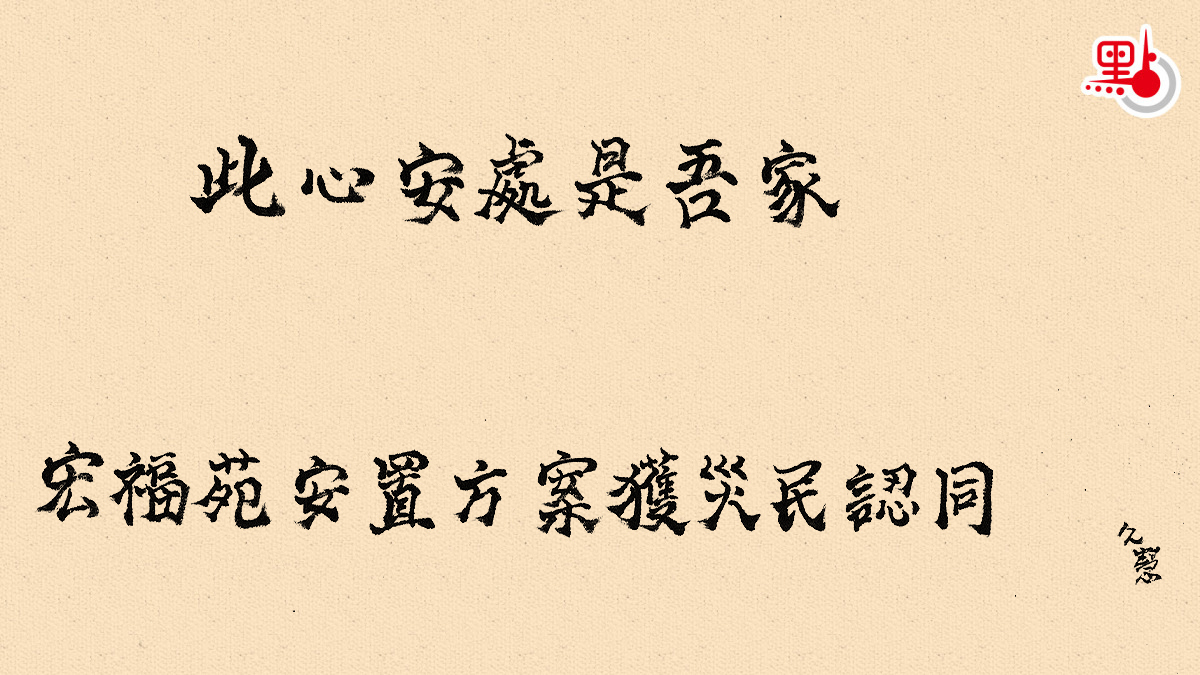 點
此心安處是吾家
宏福苑安置方案獲災民認同
久慧